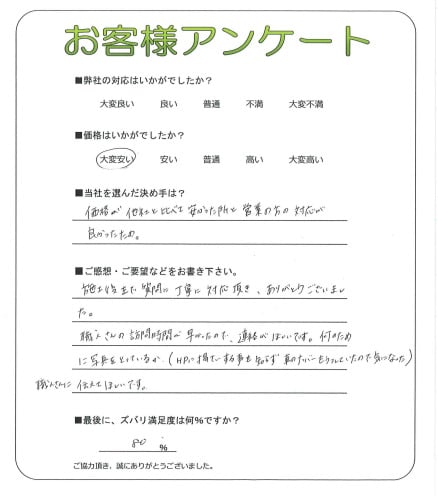 お客様アンケート
■弊社の対応はいかがでしたか？
大変良い 良い 普通 不満 大変不満
■価格はいかがでしたか？
大変安い 安い 普通 高い 大変高い
■当社を選んだ決め手は？
価格が他社と比べて安かった所と営業の方の対応が
良かったため。
■ご感想・ご要望などをお書き下さい。
施工後まで質問に丁寧に対応頂き、ありがとうございまし
た。
職人さんの訪問時間が早かったので、連絡がほしいです。何のため
に写真をとっているか（HPに掲
職人さんに伝えてほしいです。
■最後に、ズバリ満足度は何％ですか？
80 ％
ご協力頂き、誠にありがとうございました。